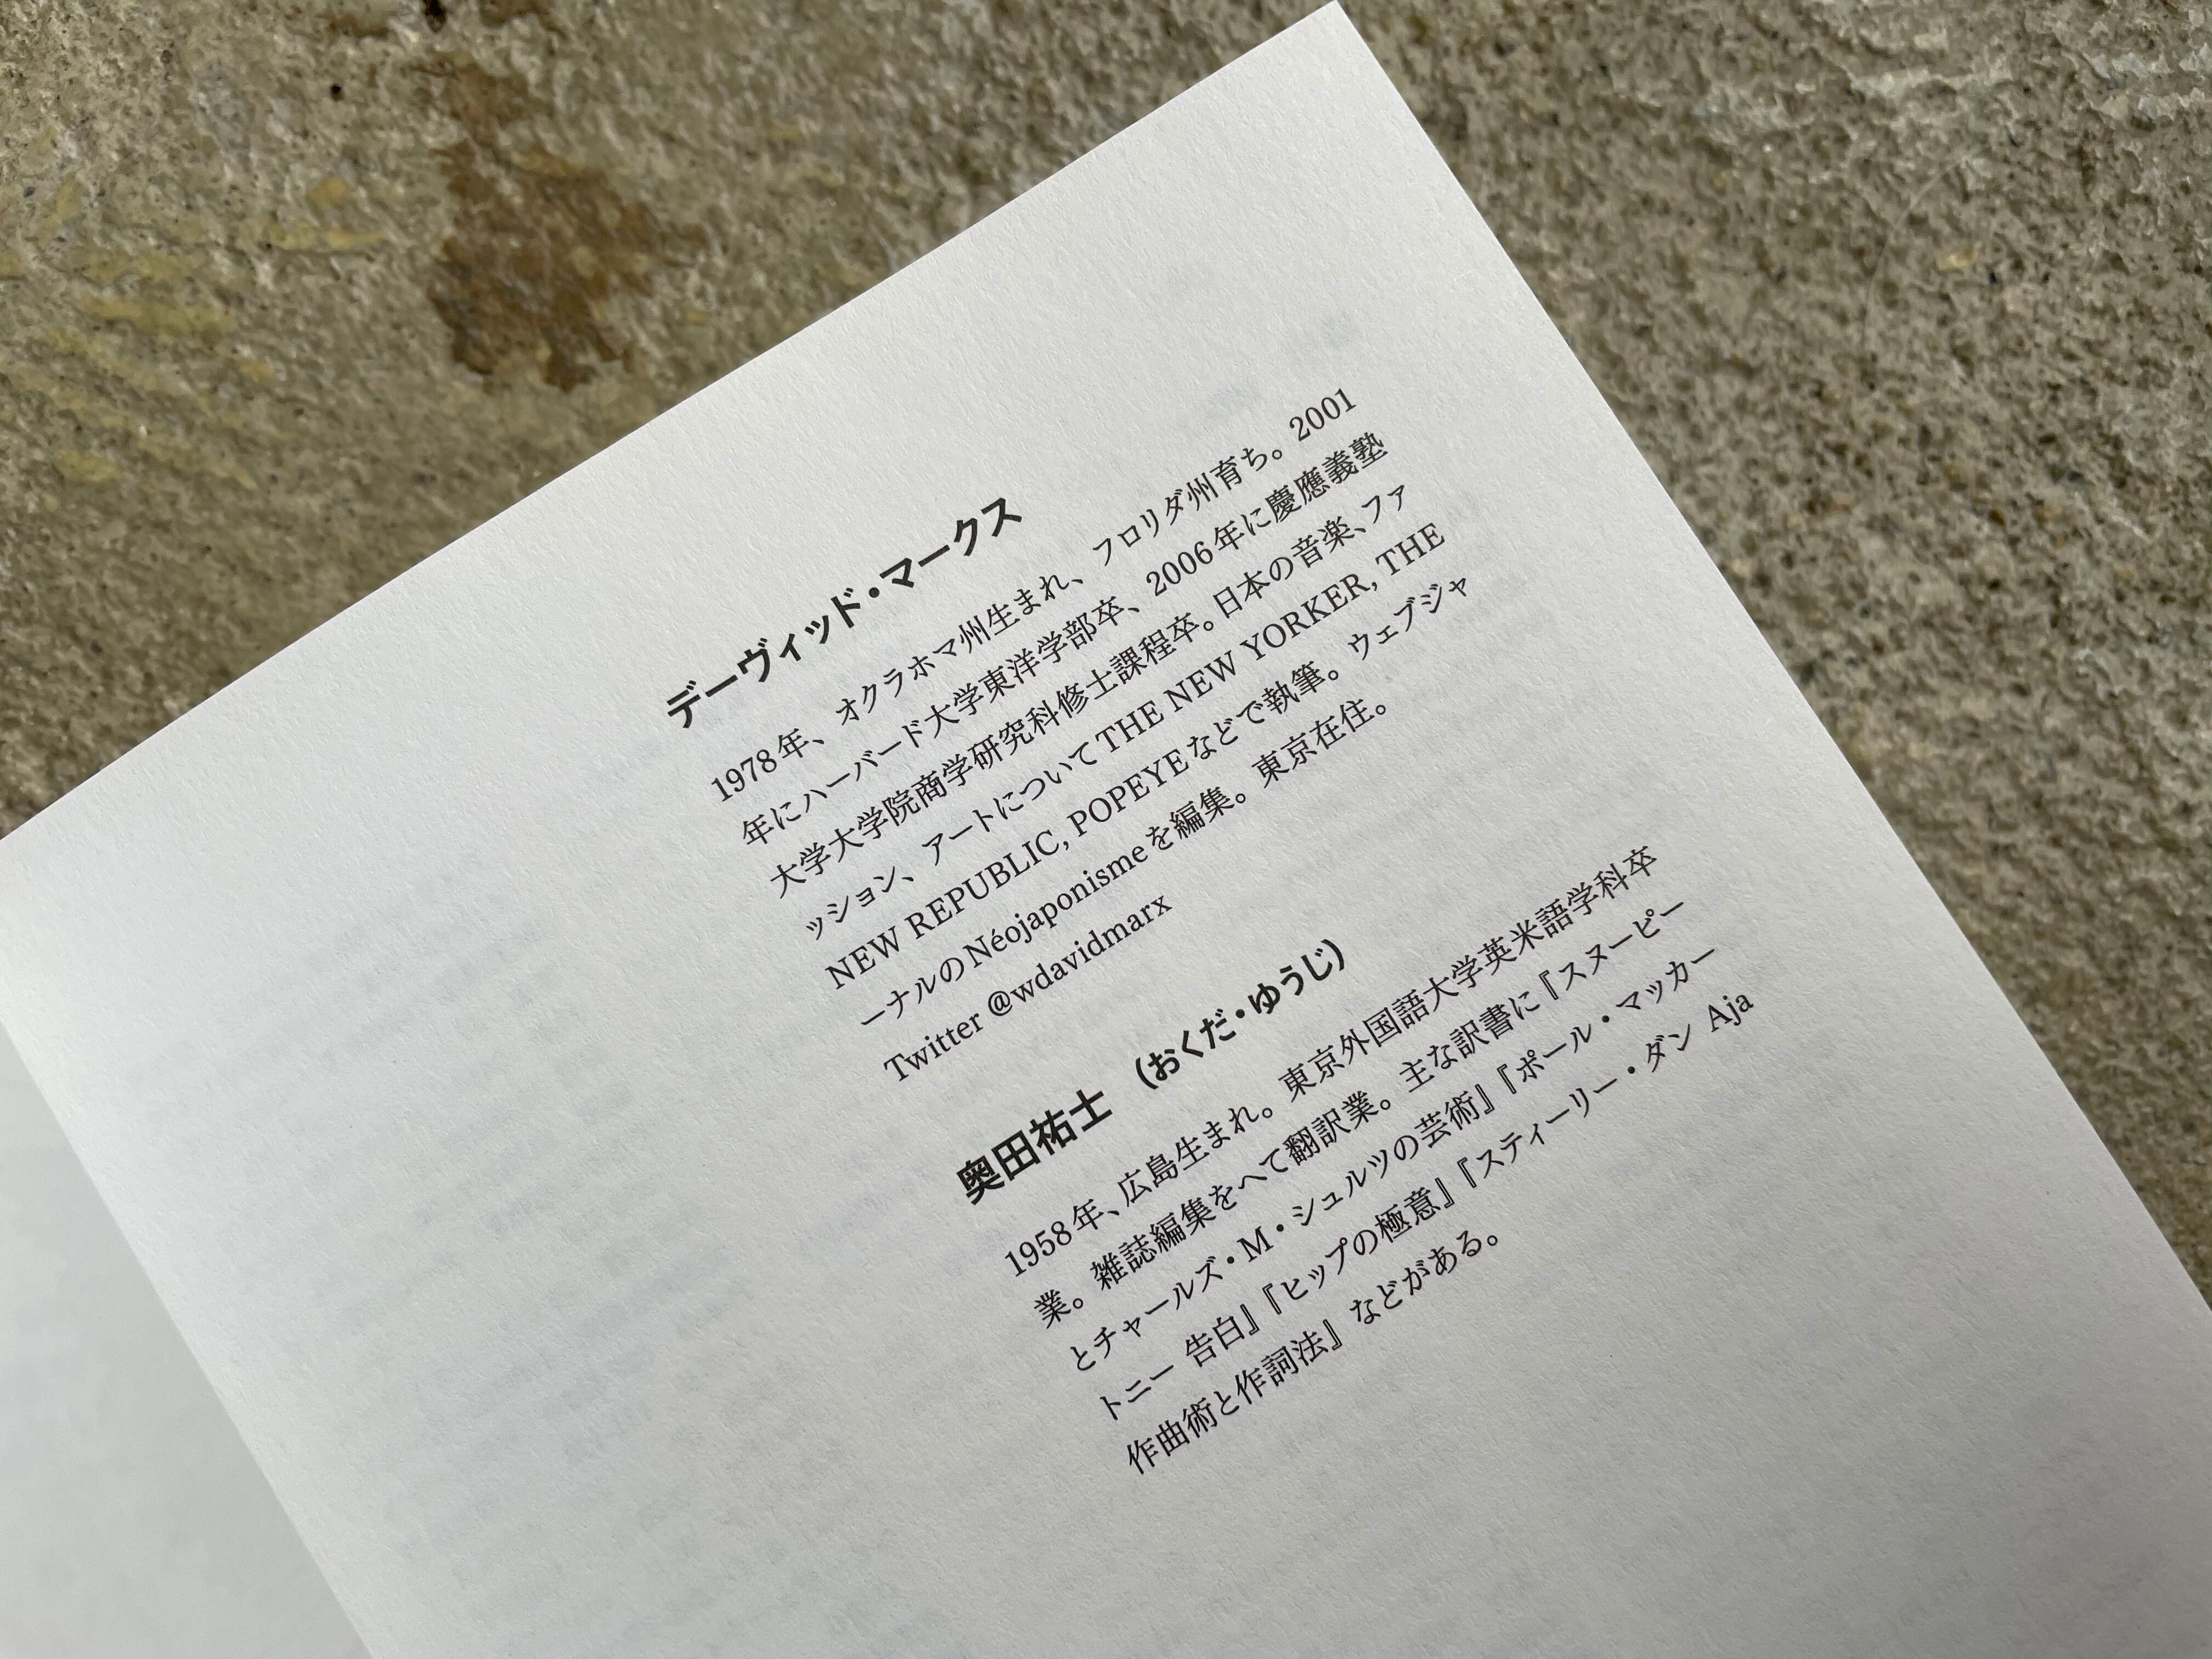 デーヴィッド・マークス
1978年、オクラホマ州生まれ、フロリダ州育ち。2001
年にハーバード大学東洋学部卒、2006年に慶應義塾
大学大学院商学研究科修士課程卒。日本の音楽、ファ
ッション、アートについてTHE NEW YORKER, THE
NEW REPUBLIC, POPEYEなどで執筆。ウェブジャ
ーナルのNéojaponismeを編集。東京在住。
Twitter @wdavidmarx
奥田祐士（おくだ・ゆうじ）
1958年、広島生まれ。東京外国語大学英米語学科卒
業。雑誌編集をへて翻訳業。主な訳書に『スヌーピー
とチャールズ・M・シュルツの芸術』『ポール・マッカー
トニー 告白』『ヒップの極意』『スティーリー・ダン Aja
作曲術と作詞法』などがある。